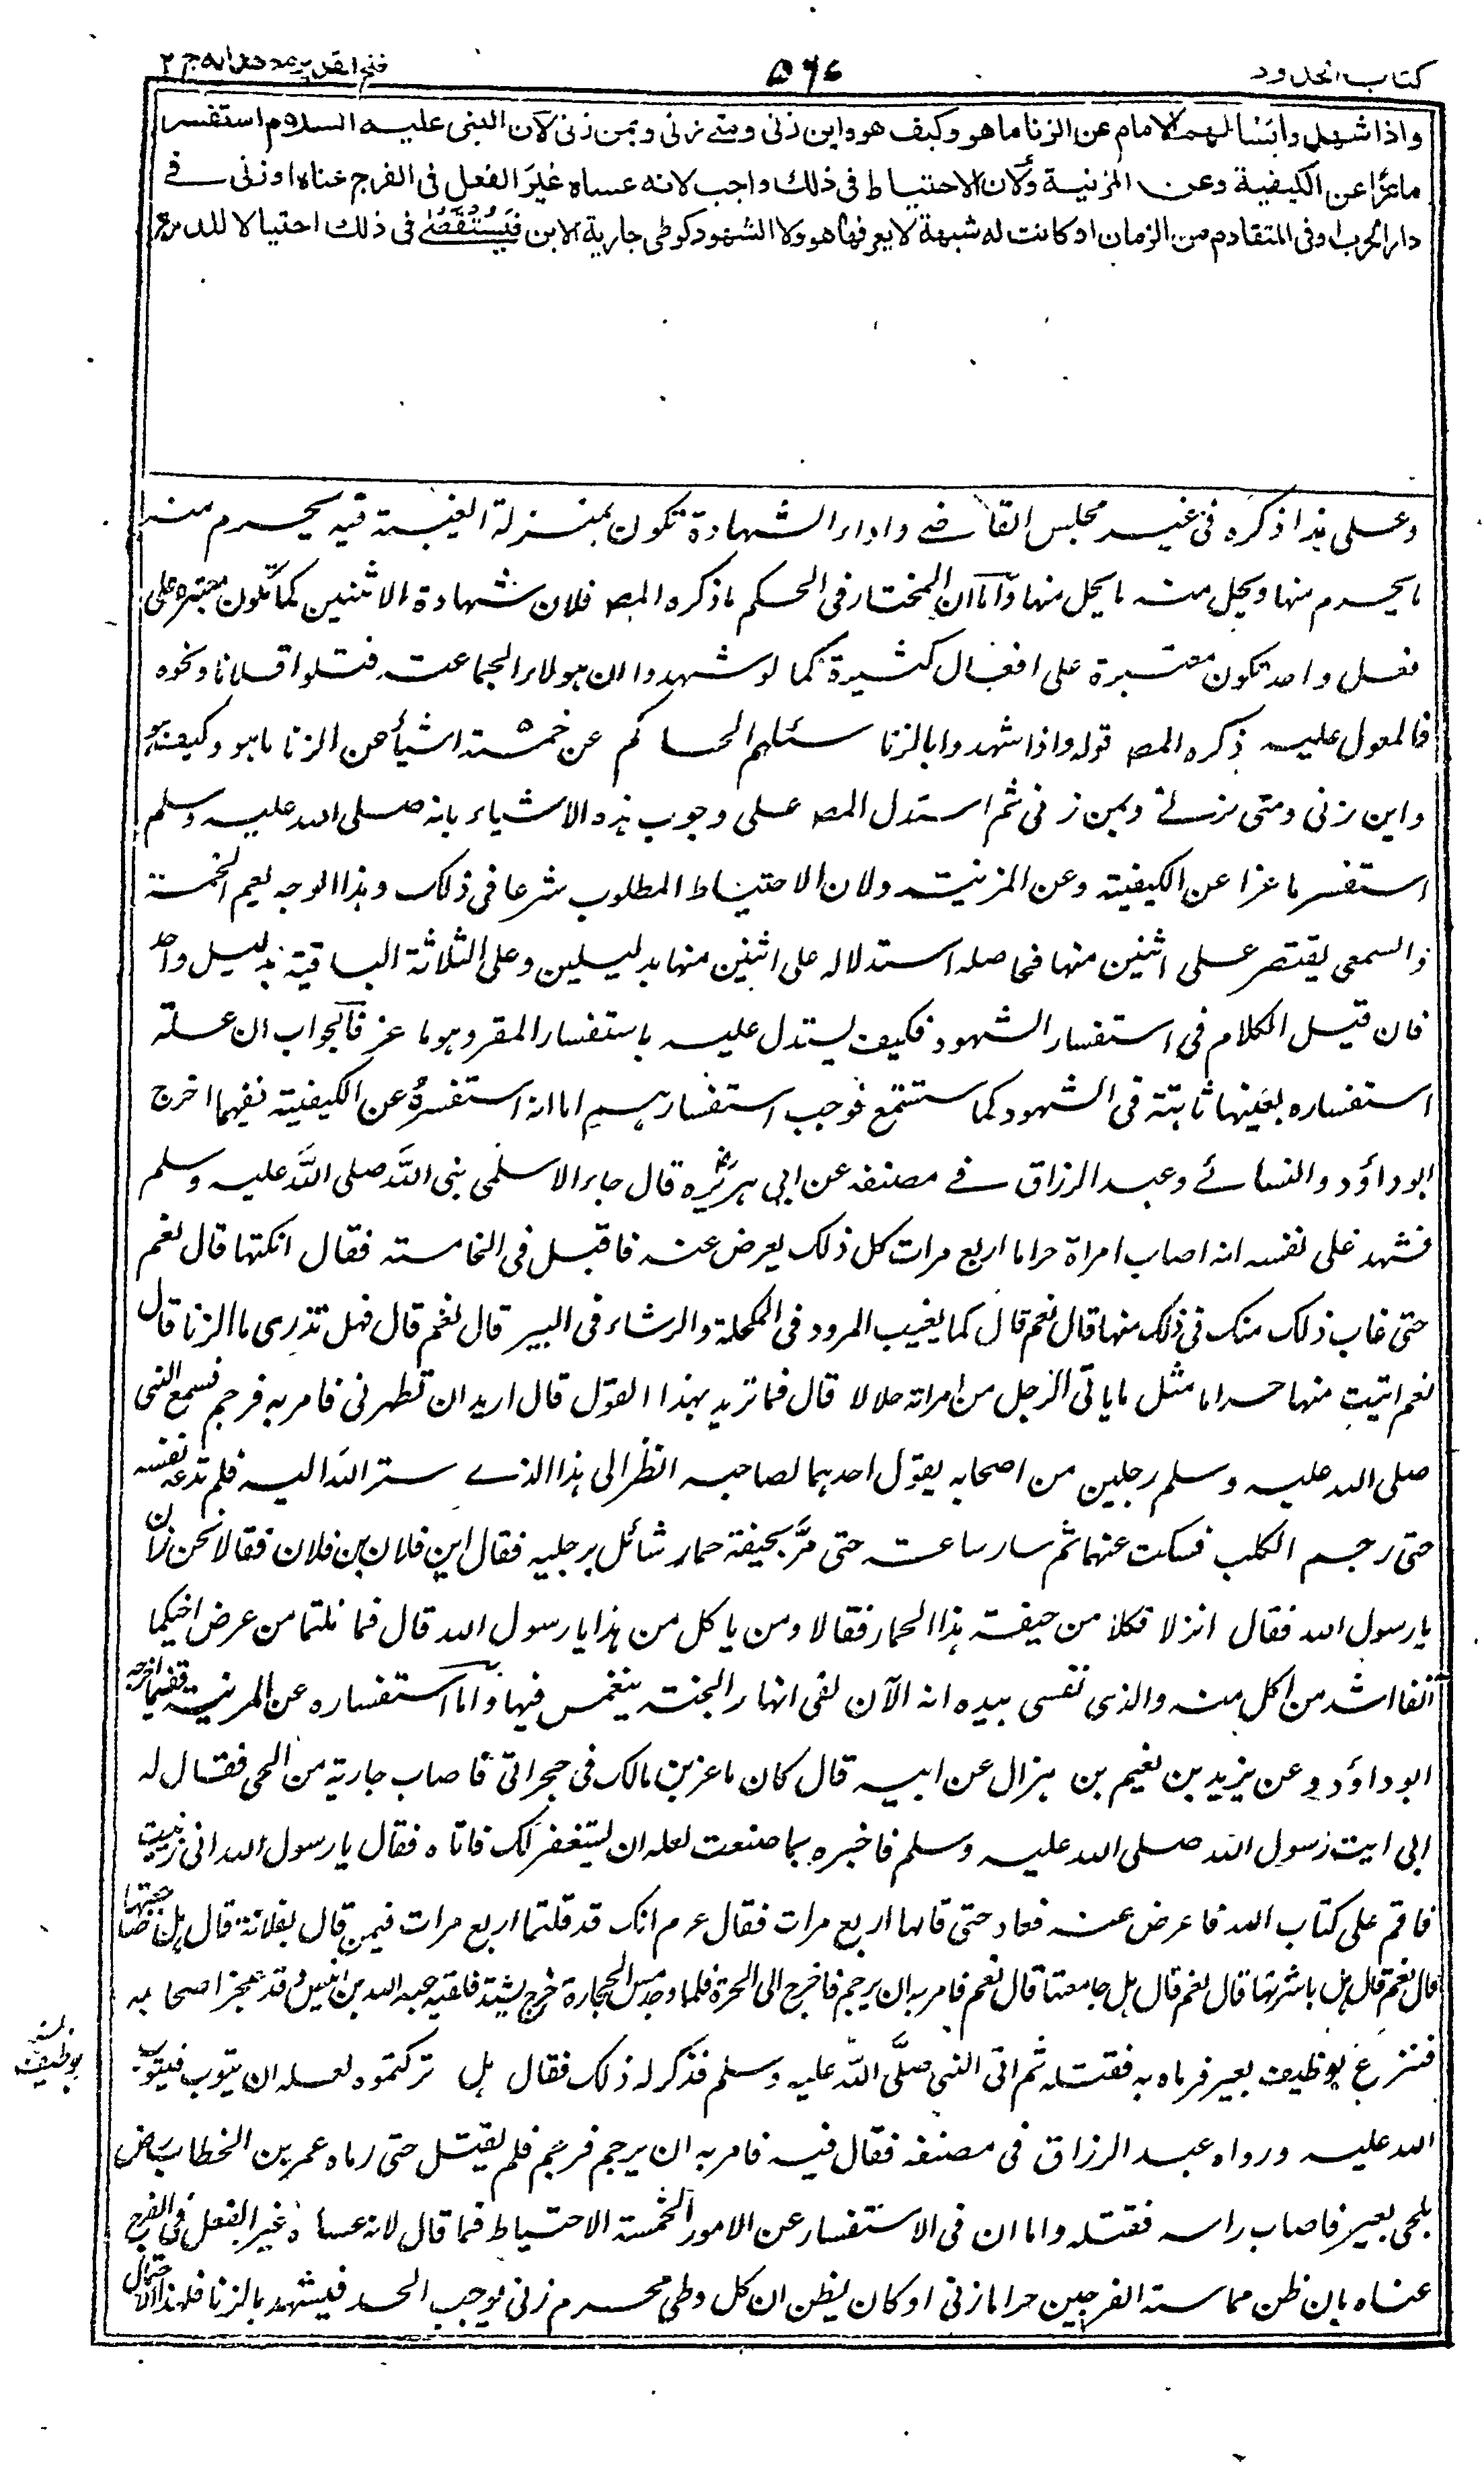 كتاب الحدود
٥٦٧
فتح القدير مع هدايه ج ٢
واذا شهدوا يسألهم الامام عن الزنا ما هو وكيف هو واين زنى ومتى زنى وبمن زنى لان النبى عليه السلام استفسر
ماعزا عن الكيفية وعن المزنية ولان الاحتياط فى ذلك واجب لانه عساه غير الفعل فى الفرج عناه او زنى فى
دار الحرب او فى المتقادم من الزمان او كانت له شبهة لا يعرفها هو ولا الشهود كوطى جارية الابن فيستقصى فى ذلك احتيالا للدرء
وعلى هذا ذكره فى غير مجلس القاضى واداء الشهادة تكون بمنزلة الغيبة فيه يحرم منه
ما يحرم منها ويحل منه ما يحل منها واما ان المختار فى الحكم ما ذكره المص فلان شهادة الاثنين كما تكون معتبرة على
فعل واحد تكون معتبرة على افعال كثيرة كما لو شهدوا ان هولاء الجماعت قتلوا فلانا ونحوه
فالمعول عليه ذكره المص قوله واذا شهدوا بالزنا سئلهم الحاكم عن خمسة اشياء عن الزنا ما هو وكيف هو
واين زنى ومتى زنى وبمن زنى ثم استدل المص على وجوب هذه الاشياء بانه صلى الله عليه وسلم
استفسر ماعزا عن الكيفية وعن المزنية ولان الاحتياط المطلوب شرعا فى ذلك وهذا الوجه يعم الخمسة
والسمعى يقتصر على اثنين منها فحاصله استدلاله على اثنين منها بدليلين وعلى الثلاثة الباقية بدليل واحد
فان قيل الكلام فى استفسار الشهود فكيف يستدل عليه باستفسار المقر وهو ماعز فالجواب ان علة
استفساره بعينها ثابتة فى الشهود كما ستسمع فوجب استفسارهم اما انه استفسره عن الكيفية ففيما اخرج
ابو داؤد والنسائى وعبد الرزاق فى مصنفه عن ابى هريرة قال جاء الاسلمى نبى الله صلى الله عليه وسلم
فشهد على نفسه انه اصاب امراة حراما اربع مرات كل ذلك يعرض عنه فاقبل فى الخامسة فقال انكتها قال نعم
حتى غاب ذلك منك فى ذلك منها قال نعم قال كما يغيب المرود فى المكحلة والرشاء فى البير قال نعم قال فهل تدرى ما الزنا قال
نعم اتيت منها حراما مثل ما ياتى الرجل من امراته حلالا قال فما تريد بهذا القول قال اريد ان تطهرنى فامر به فرجم فسمع النبى
صلى الله عليه وسلم رجلين من اصحابه يقول احدهما لصاحبه انظر الى هذا الذى ستر الله اليه فلم تدعه نفسه
حتى رجم الكلب فسكت عنهما ثم سار ساعة حتى مر بجيفة حمار شائل برجليه فقال اين فلان بن فلان فقالا نحن ذان
يا رسول الله فقال انزلا فكلا من جيفة هذا الحمار فقالا ومن ياكل من هذا يا رسول الله قال فما نلتما من عرض اخيكما
آنفا اشد من اكل منه والذى نفسى بيده انه الآن لفى انهار الجنة ينغمس فيها واما استفساره عن المزنية ففيما اخرجه
ابو داؤد وعن يزيد بن نعيم بن هزال عن ابيه قال كان ماعز بن مالك فى حجر ابى فاصاب جارية من الحى فقال له
ابى ايت رسول الله صلى الله عليه وسلم فاخبره بما صنعت لعله ان يستغفر لك فاتاه فقال يا رسول الله انى زنيت
فاقم على كتاب الله فاعرض عنه فعاد حتى قالها اربع مرات فقال عرم انك قد قلتها اربع مرات فيمن قال بفلانة قال هل ضاجعتها
قال نعم قال هل باشرتها قال نعم قال هل جامعتها قال نعم فامر به ان يرجم فاخرج الى الحرة فلما وجد مس الحجارة خرج يشتد فلقيه عبد الله بن انيس وقد عجز اصحابه
فنزع بوظيف بعير فرماه به فقتله ثم اتى النبى صلى الله عليه وسلم فذكر له ذلك فقال هل تركتموه لعله ان يتوب فيتوب
بوظيف
الله عليه ورواه عبد الرزاق فى مصنفه فقال فيه فامر به ان يرجم فرجم فلم يقتل حتى رماه عمر بن الخطاب رض
بلحى بعير فاصاب راسه فقتله واما ان فى الاستفسار عن الامور الخمسة الاحتياط فما قال لانه عساه غير الفعل فى الفرج
عناه بان ظن مماسة الفرجين حراما زنى او كان يظن ان كل وطى محرم زنى يوجب الحد فيشهد بالزنا فلهذا الاحتمال